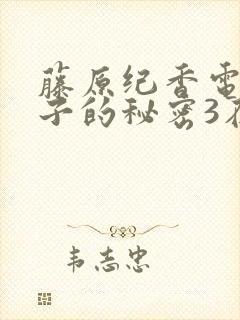 藤原纪香电
子的秘密3在
韦志忠